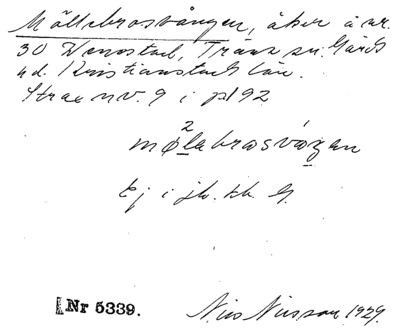 Möllebrosvången, åker å nr.
30 Venestad, Trane sn. Gärds
hd. Kristianstads län.
Strax nv. 9 i pl 92
2
møłabrosvøgan
Ej i jb. el. G.
Nr 5339.
Nils Nilsson 1929.